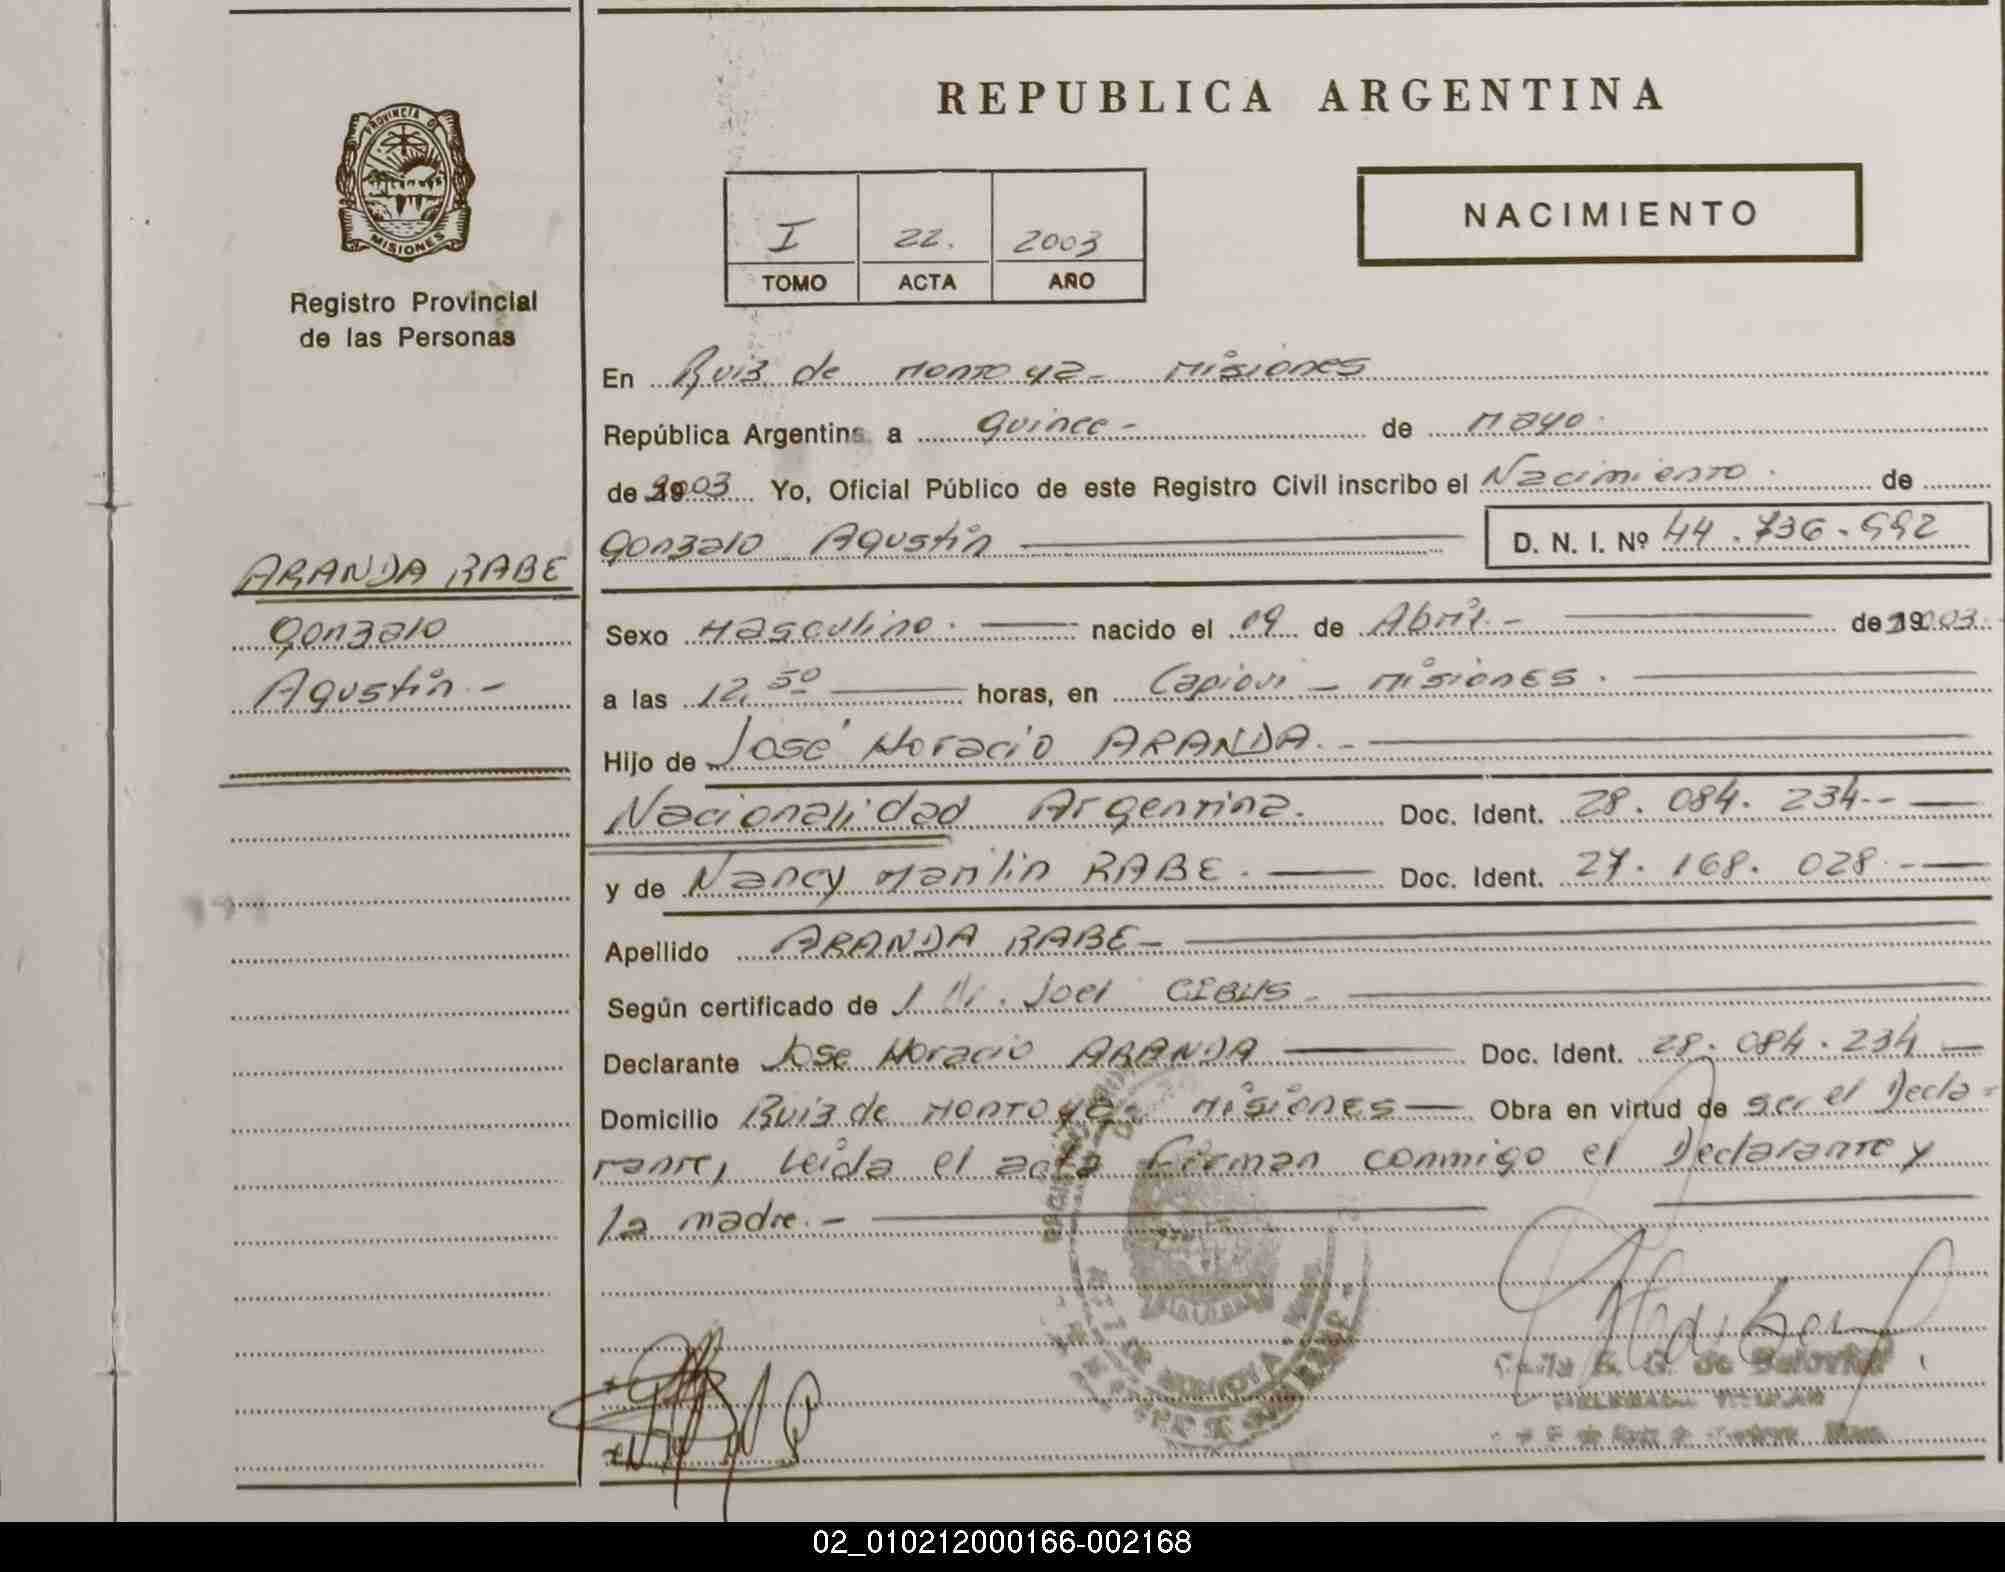 PROVINCIA DE
MISIONES
Registro Provincial
de las Personas
ARANDA RABE
Gonzalo
Agustín.-
REPUBLICA ARGENTINA
I 22. 2003
TOMO ACTA AÑO
NACIMIENTO
En Ruiz de Montoya - Misiones
República Argentina a quince - de Mayo.
de 2003 Yo, Oficial Público de este Registro Civil inscribo el Nacimiento. de
Gonzalo Agustín D. N. I. Nº 44.736.992
Sexo Masculino. nacido el 09 de Abril.- de 2003.
a las 12,50 horas, en Capiovi - Misiones.
Hijo de José Horacio ARANDA.-
Nacionalidad Argentina. Doc. Ident. 28.084.234.-
y de Nancy Marilin RABE. Doc. Ident. 27.168.028.-
Apellido ARANDA RABE-
Según certificado de Dr. Joel CIBUS.
Declarante Jose Horacio ARANDA Doc. Ident. 28.084.234
Domicilio Ruiz de Montoya - Misiones Obra en virtud de ser el Decla-
rante, leída el acta firman conmigo el Declarante y
la madre.-
02_010212000166-002168